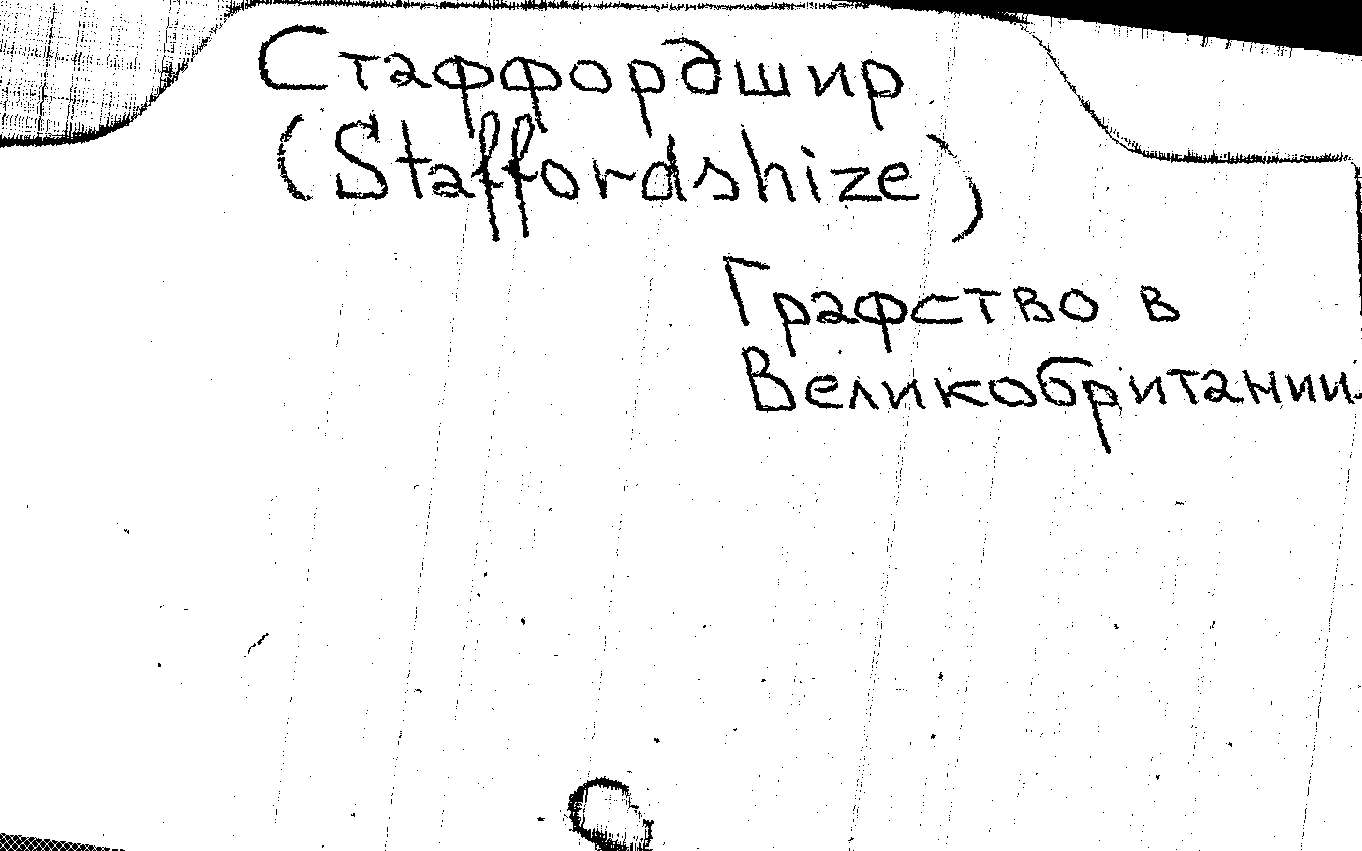 Стаффордшир
(Staffordshize)
Графство в
Великобритании.